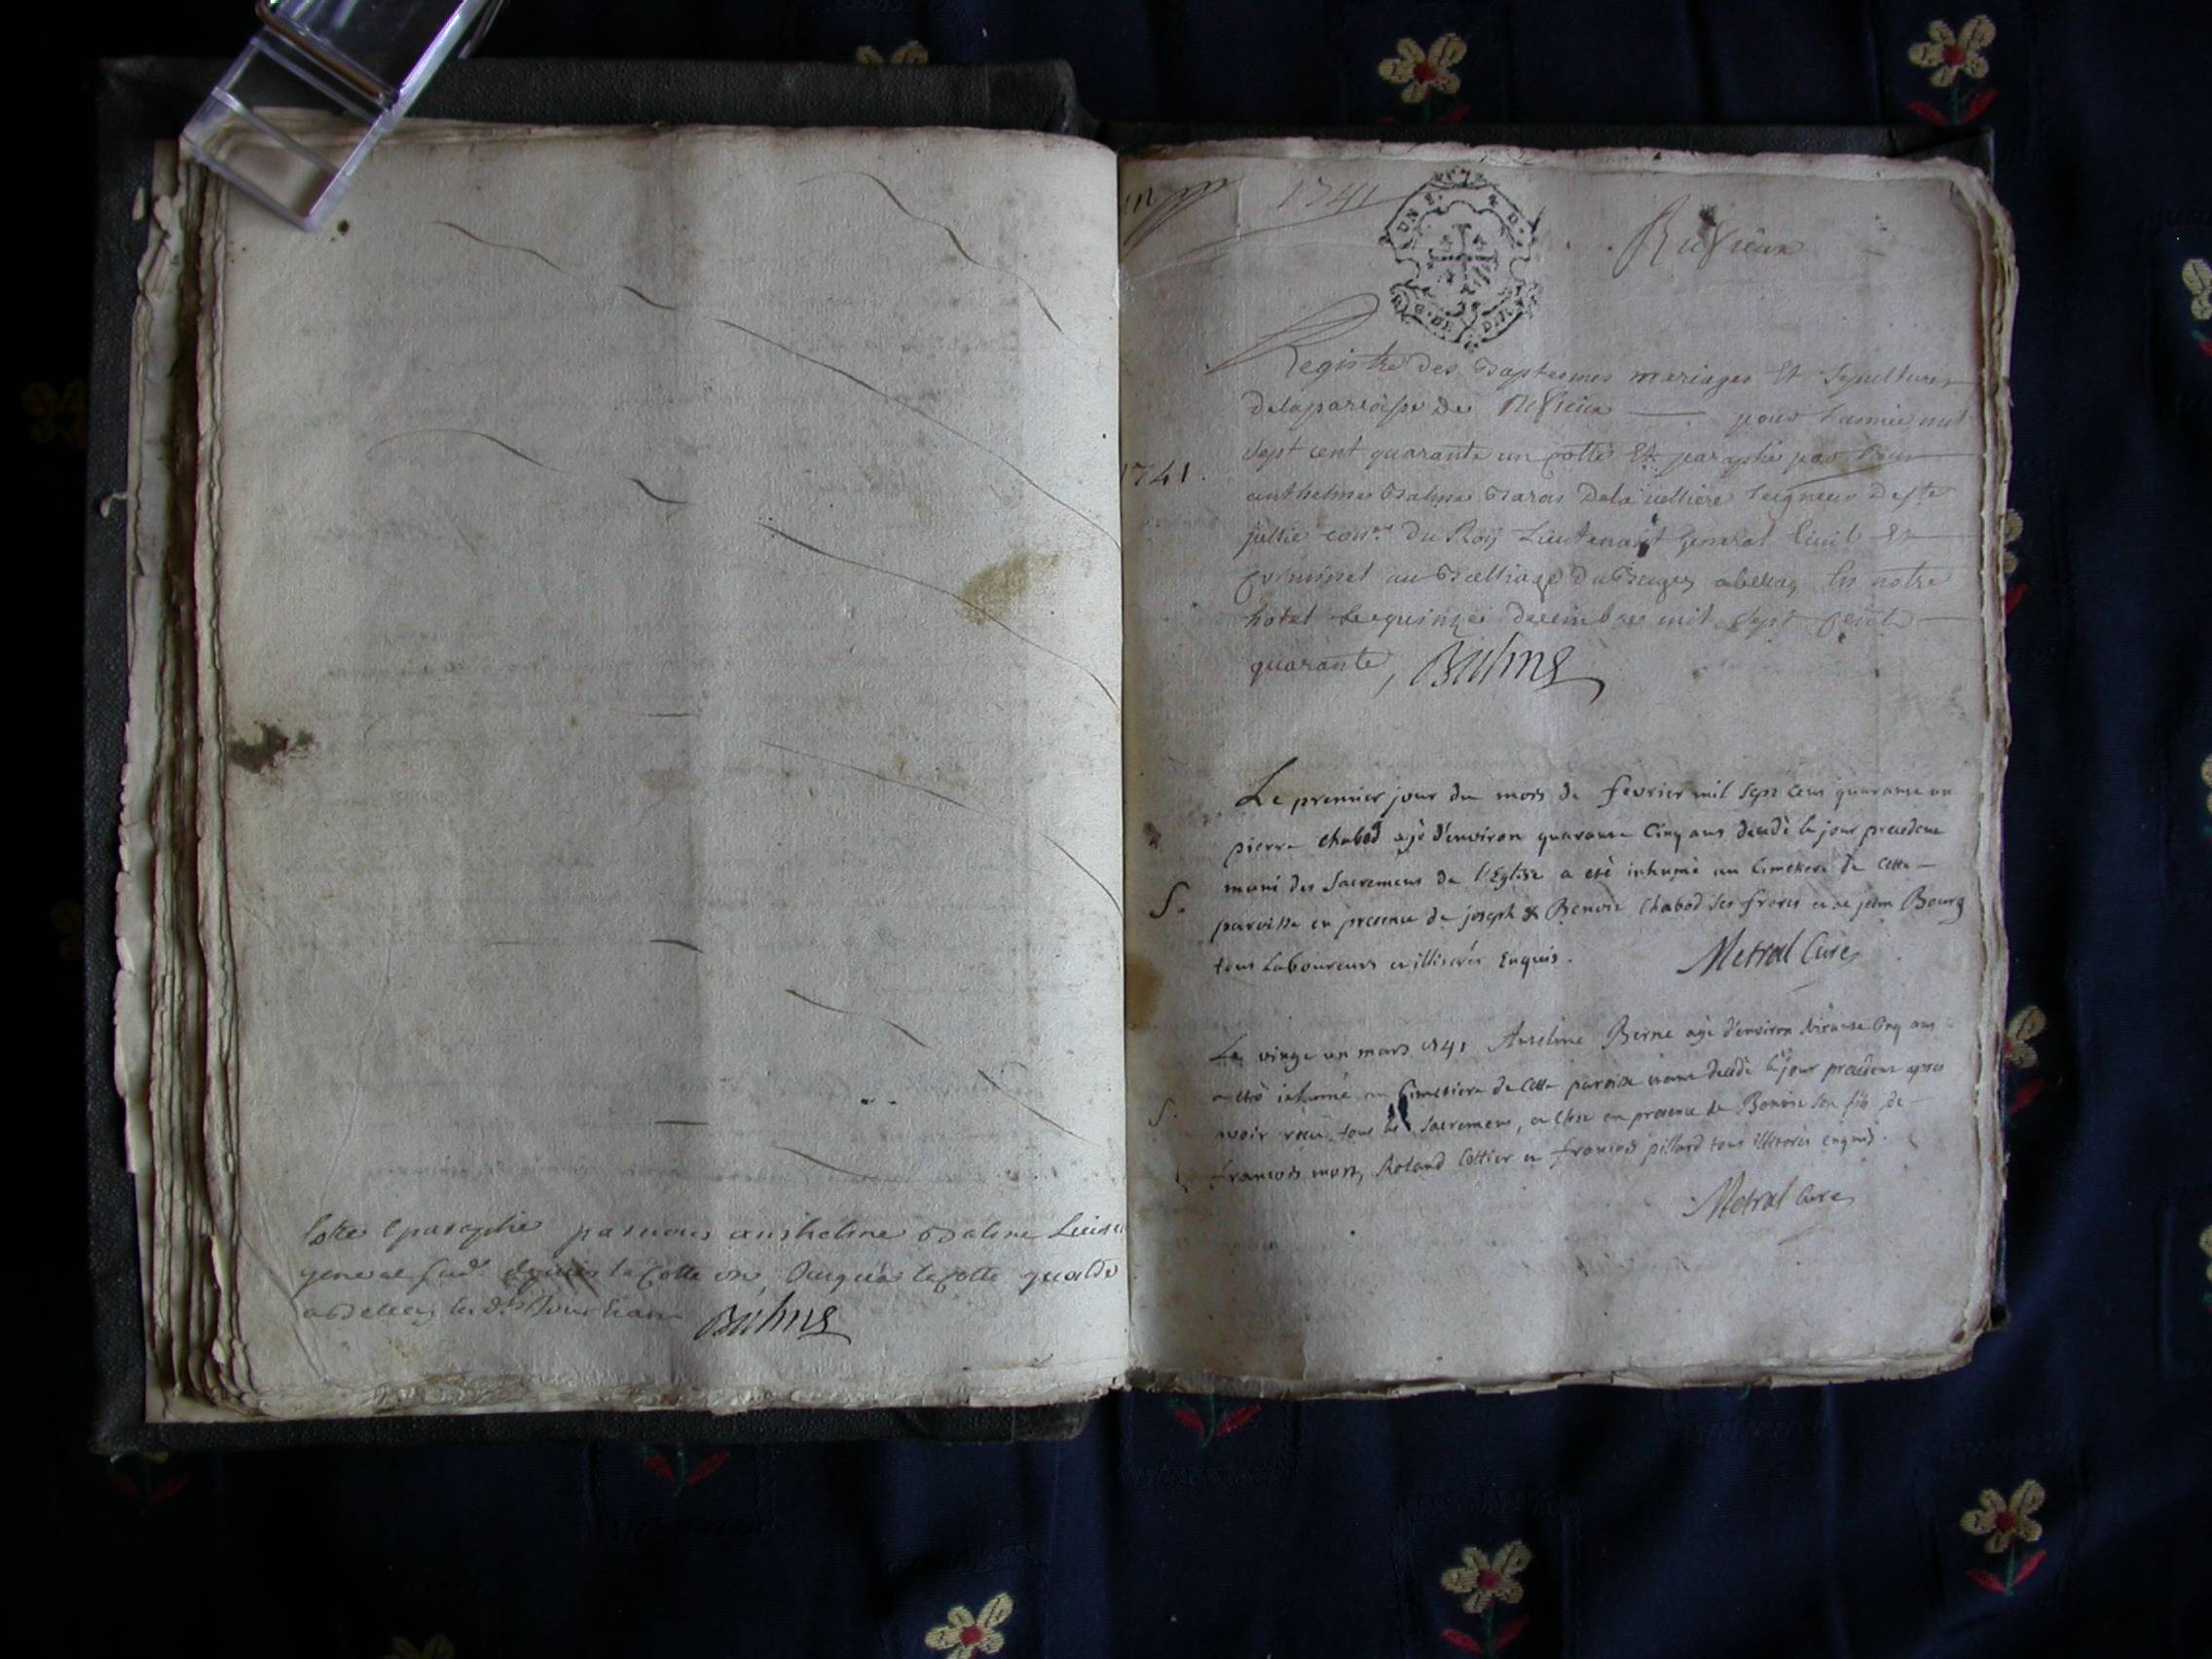 Cotté et paraphé par nous anthelme Balme Lieut
general sud. depuis la Cotte un, Jusqu'a la Cotte
a Belley les d. Jour et an Balme
un 1741 Rufieux
Registre des Baptesmes mariages Et Sepultures
de la paroisse de Rufieux pour l'année mil
sept cent quarante un Cotté Et paraphé par Nous
anthelme Balme Baron de la velliere Seigneur de ste
jullie con.er du Roy Lieutenant General Civil Et
Criminel au Bailliage du Bugey a belley En notre
hotel Le quinze decembre mil Sept Cent
quarante, Balme
1741.
Le premier jour du mois de fevrier mil sept cent quarante un
pierre chabod agé d'environ quarante Cinq ans decedé le jour precedent
muni des Sacremens de l'Eglise a eté inhumé au Cimetiere de Cette
S.
paroisse en presence de joseph & Benoit Chabod ses freres et de jean Bourg
tous Laboureurs et illiterés Enquis.
Metral Curé
Le vingt un mars 1741 Anselme Berne agé d'environ Cinq ans
a eté inhumé au Cimetiere de Cette paroisse etant decedé le jour precedent apres
S.
avoir recu tous les Sacremens, et Ce en presence de Benoit Son fils de
francois mort, Roland Cottier et francois pillard tous illiterés enquis.
Metral Curé